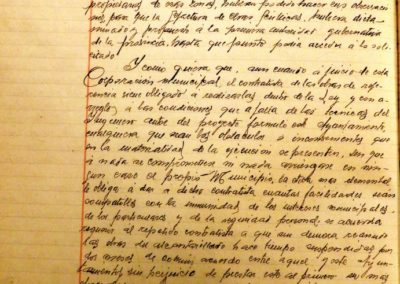 propietarios de esas zonas, hubieran podido hacer sus observacio
nes, para que la Jefatura de Obras Públicas, hubiera dicta
minado y propuesto a la primera autoridad gubernativa
de la provincia, hasta que punto podía acceder a lo soli
citado
Y como quiera que, aun cuando a juicio de esta
Corporación municipal, el contratista de las obras de
referencia viene obligado a realizarlas dentro de la Ley y con a
rreglo a las condiciones que a falta de las
Ingeniero autor del proyecto formule el Ayuntamiento,
que sean los obstáculos e inconvenientes que
en la materialidad de la ejecución se presenten, sin que
a nada se comprometa ni nada arriesgue en nin
gún caso el propio Municipio,
le obliga a dar a dicho contratista cuantas facilidades sean
compatibles con la inmunidad de los intereses municipales,
de los particulares y de la seguridad personal, se acuerda
requerir al repetido contratista a que sin demora reanude
las obras de hace tiempo suspendidas por
de común acuerdo entre aquel y este Ayun
tamiento, sin perjuicio de prestar este al primero